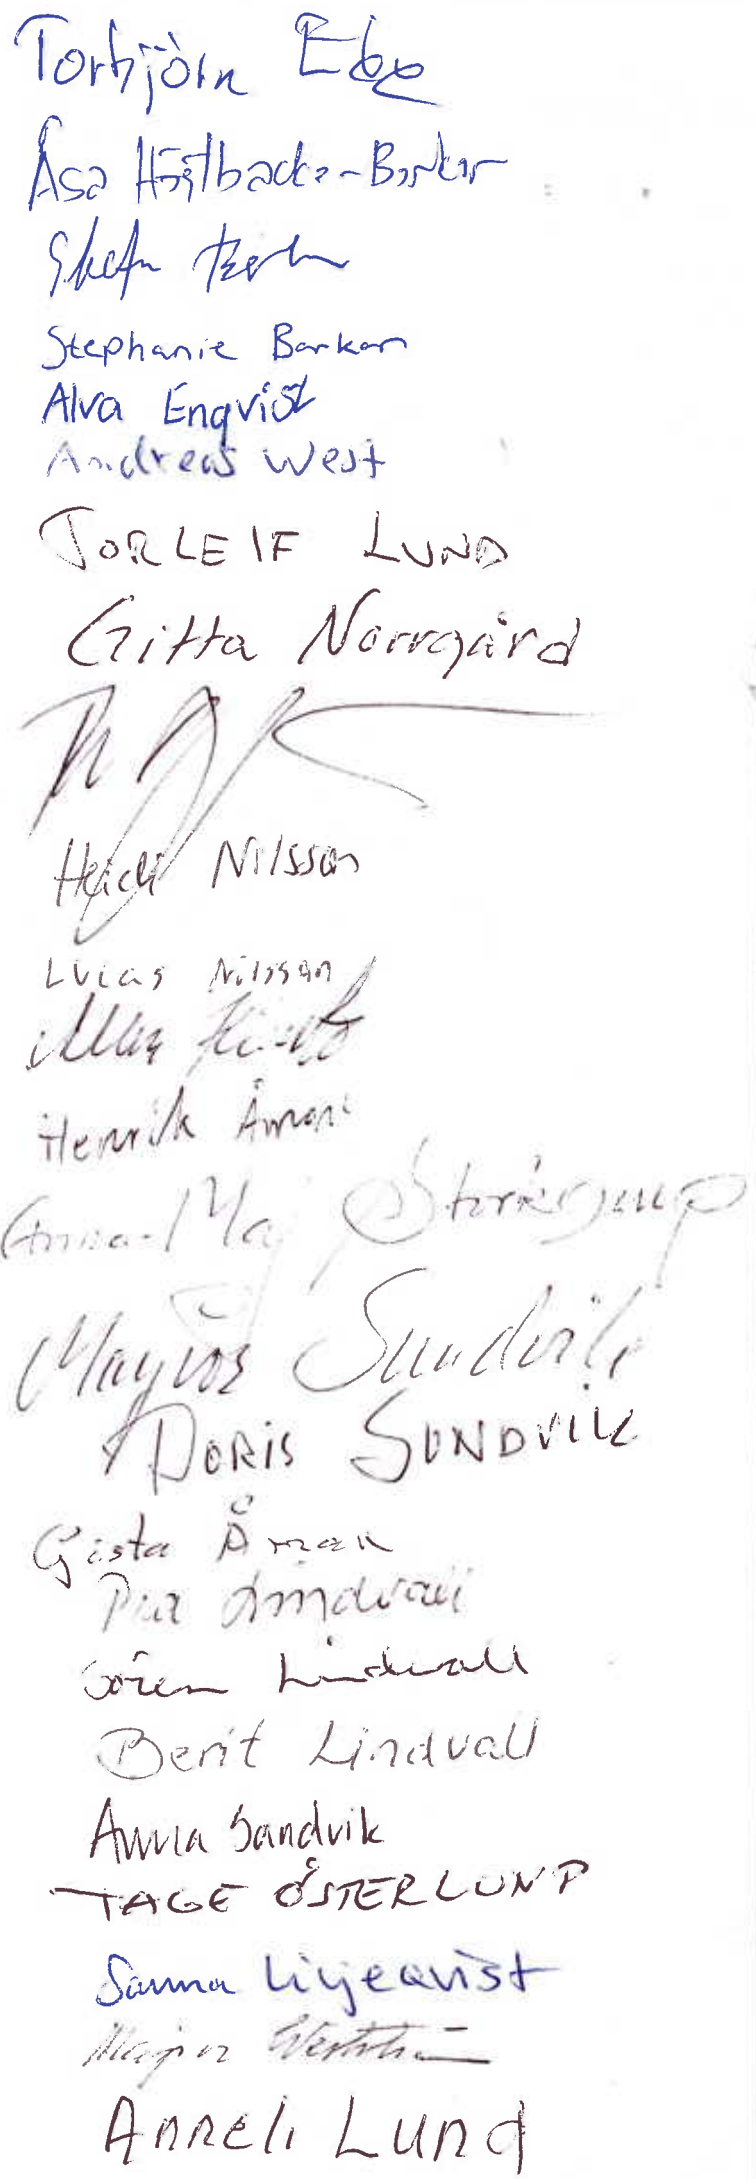 Torbjörn Ebe
Åsa Högtbacka-Barkar
Stephanie Barkar
Alva Enqvist
Andreas West
TORLEIF LUND
Gitta Norrgård
Heidi Nilsson
Lucas Nilsson
Henrik Åman
Anna-Maj
Mayvor Sundvik
DORIS SUNDVIK
Gösta Åman
Pia Lindvall
Sören Lindvall
Berit Lindvall
Anna Sandvik
TAGE ÖSTERLUND
Sanna Liljeqvist
Anneli Lund